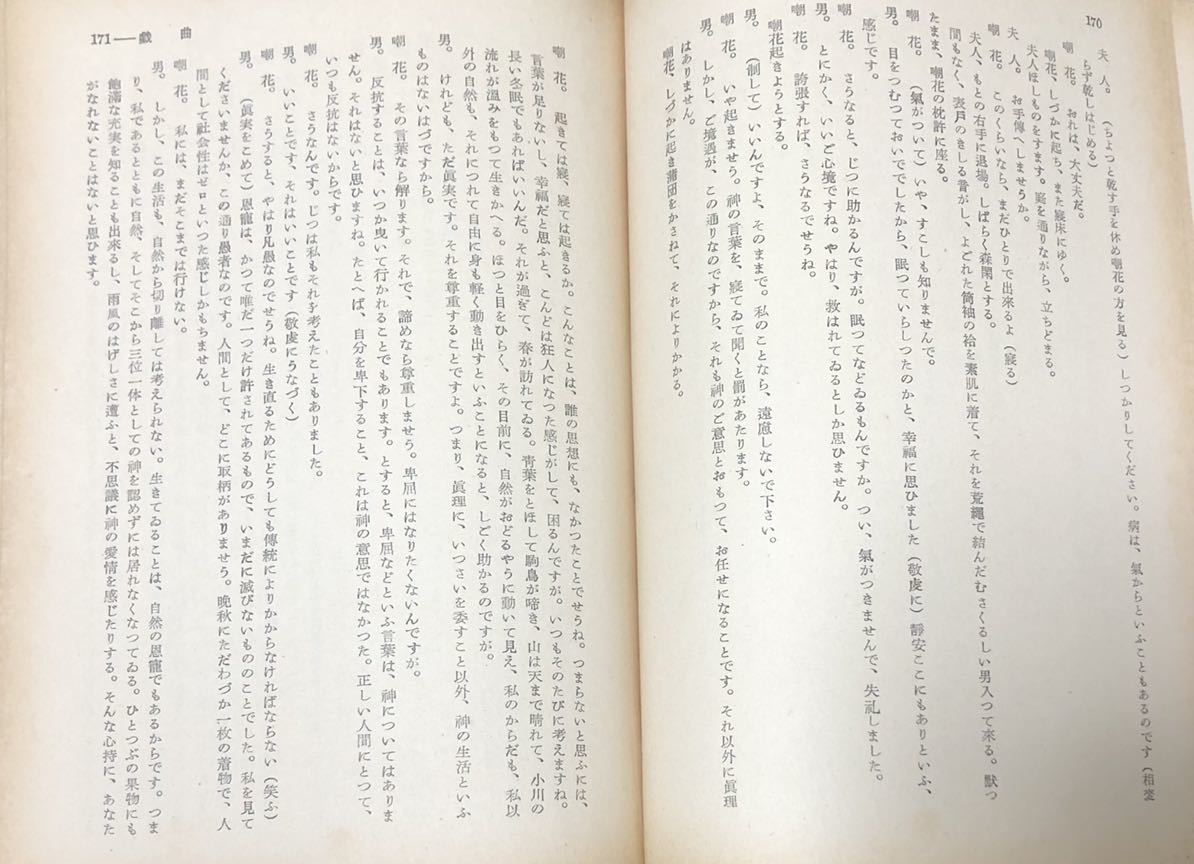 170
夫　人。　（ちよつと乾す手を休め嘲花の方を見る）しつかりしてください。病は、氣からといふこともあるのです（相変
らず乾しはじめる）
嘲　花。　おれは、大丈夫だ。
嘲花、しづかに起ち、また寢床にゆく。
夫人ほしものをすます。庭を通りながら、立ちどまる。
夫　人。　お手傳へしませうか。
嘲　花。　このくらいなら、まだひとりで出來るよ（寢る）
夫人、もとの右手に退場。しばらく森閑とする。
間もなく、表戸のきしる音がし、よごれた筒袖の袷を素肌に着て、それを荒繩で結んだむさくるしい男入つて來る。默つ
たまま、嘲花の枕許に座る。
嘲　花。　（氣がついて）いや、すこしも知りませんで。
男。　目をつむつておいででしたから、眠つていらしつたのかと、幸福に思ひました（敬虔に）靜安ここにもありといふ、
感じです。
嘲　花。　さうなると、じつに助かるんですが。眠つてなどゐるもんですか。つい、氣がつきませんで、失礼しました。
男。　とにかく、いい心境ですね。やはり、救はれてゐるとしか思ひません。
嘲　花。　誇張すれば、さうなるでせうね。
嘲花起きようとする。
男。　（制して）いいんですよ、そのままで。私のことなら、遠慮しないで下さい。
嘲　花。　いや起きませう。神の言葉を、寢てゐて聞くと罰があたります。
男。　しかし、ご境遇が、この通りなのですから、それも神のご意思とおもつて、お任せになることです。それ以外に眞理
はありません。
嘲花、しづかに起き蒲団をかさねて、それによりかかる。
171―戯　曲
嘲　花。　起きては寢、寢ては起きるか。こんなことは、誰の思想にも、なかつたことでせうね。つまらないと思ふには、
言葉が足りないし、幸福だと思ふと、こんどは狂人になつた感じがして、困るんですが。いつもそのたびに考えますね。
長い冬眠でもあればいいんだ。それが過ぎて、春が訪れてゐる。青葉をとほして駒鳥が啼き、山は天まで晴れて、小川の
流れが溫みをもつて生きかへる。ほつと目をひらく、その目前に、自然がおどるやうに動いて見え、私のからだも、私以
外の自然も、それにつれて自由に身も軽く動き出すといふことになると、しごく助かるのですが。
男。　けれども、ただ眞実です。それを尊重することですよ。つまり、眞理に、いつさいを委すこと以外、神の生活といふ
ものはないはづですから。
嘲　花。　その言葉なら解ります。それで、諦めなら尊重しませう。卑屈にはなりたくないんですが。
男。　反抗することは、いつか曳いて行かれることでもあります。とすると、卑屈などといふ言葉は、神についてはありま
せん。それはないと思ひますね。たとへば、自分を卑下すること、これは神の意思ではなかつた。正しい人間にとつて、
いつも反抗はないからです。
嘲　花。　さうなんです。じつは私もそれを考えたこともありました。
男。　いいことです、それはいいことです（敬虔にうなづく）
嘲　花。　さうすると、やはり凡愚なのでせうね。生き直るためにどうしても傳統によりかからなければならない（笑ふ）
男。　（眞実をこめて）恩寵は、かつて唯だ一つだけ許されてあるもので、いまだに滅びないもののことでした。私を見て
くださいませんか、この通り愚者なのです。人間として、どこに取柄がありませう。晩秋にただわづか一枚の着物で、人
間として社会性はゼロといつた感じしかもちません。
嘲　花。　私には、まだそこまでは行けない。
男。　しかし、この生活も、自然から切り離しては考えられない。生きてゐることは、自然の恩寵でもあるからです。つま
り、私であるとともに自然、そしてそこから三位一体としての神を認めずには居れなくなつてゐる。ひとつぶの果物にも
飽滿な充実を知ることも出來るし、雨風のはげしさに遭ふと、不思議に神の愛情を感じたりする。そんな心持に、あなた
がなれないことはないと思ひます。